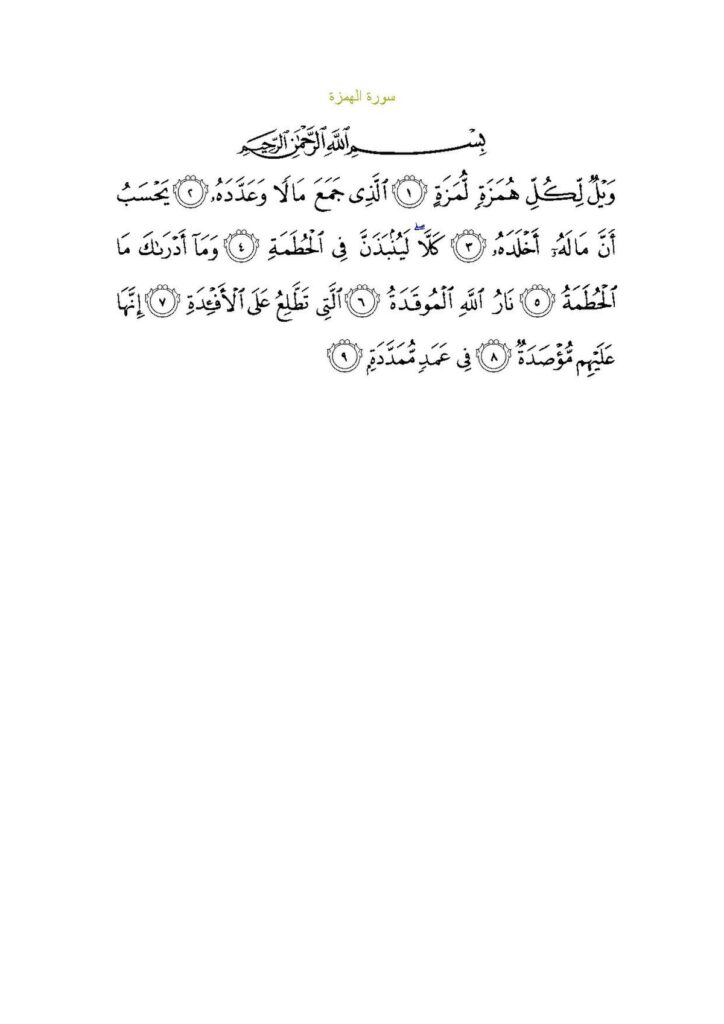 سورة الهمزة
بِسْمِ اللَّهِ الرَّحْمَٰنِ الرَّحِيمِ
وَيْلٌ لِّكُلِّ هُمَزَةٍ لُّمَزَةٍ ﴿١﴾ الَّذِى جَمَعَ مَالًا وَعَدَّدَهُۥ ﴿٢﴾ يَحْسَبُ
أَنَّ مَالَهُۥٓ أَخْلَدَهُۥ ﴿٣﴾ كَلَّا ۖ لَيُنۢبَذَنَّ فِى الْحُطَمَةِ ﴿٤﴾ وَمَآ أَدْرَىٰكَ مَا
الْحُطَمَةُ ﴿٥﴾ نَارُ اللَّهِ الْمُوقَدَةُ ﴿٦﴾ الَّتِى تَطَّلِعُ عَلَى الْأَفْـِٔدَةِ ﴿٧﴾ إِنَّهَا
عَلَيْهِم مُّؤْصَدَةٌ ﴿٨﴾ فِى عَمَدٍ مُّمَدَّدَةٍۭ ﴿٩﴾